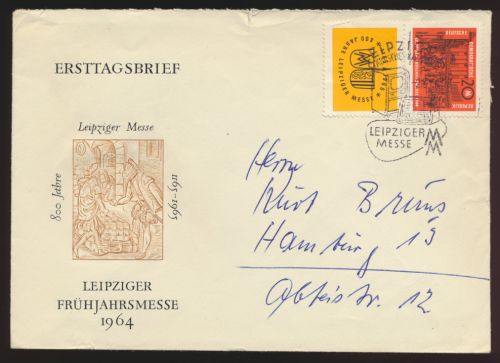 ERSTTAGSBRIEF
Leipziger Messe
800 Jahre
1165-1965
LEIPZIGER
FRÜHJAHRSMESSE
1964
800 JAHRE LEIPZIGER MESSE
20
LEIPZIGER
MESSE
MM
Herrn
Kurt Bruns
Hamburg 13
Abteistr. 12